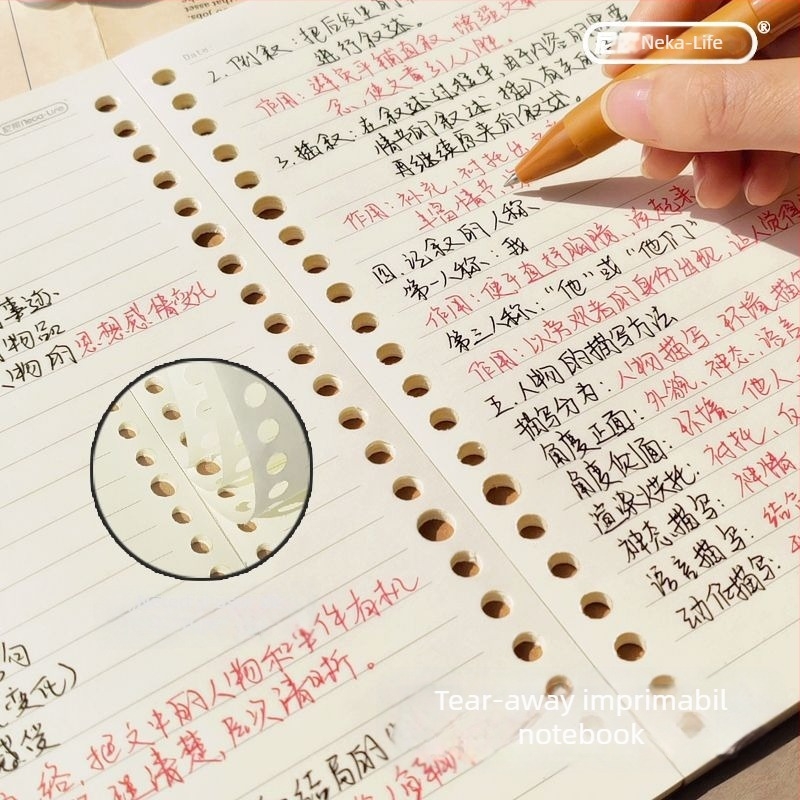 jobs.
material asset.
Date
尼家 Neka-Life
尼家 Neka-Life ®
2. 倒叙：把后发生的
进行叙述。
作用：避免平铺直叙，增强文章
念，使文章引人入胜。
3. 插叙：在叙述过程中，由于内容的需要
情节的叙述，插入有关
再继续原来的叙述。
作用：补充，衬托出
丰富情节
四. 记叙的人称
第一人称：我
作用：便于直接胸臆，读起来
第三人称："他"或"他们"
作用：以旁观者的身份出现，让人觉得
五. 人物的描写方法
描写分为：人物描写，环境描
角度正面：外貌，神态，语言
角度侧面：环境，他人
渲染烘托：衬托，
神态描写：神情
语言描写：结合
动作描写：
事迹
物品
人物的思想感情变化
句
变化）
络，把文中的人物和事件有机
理清楚，层次清晰。
结局的
Tear-away imprimabil
notebook